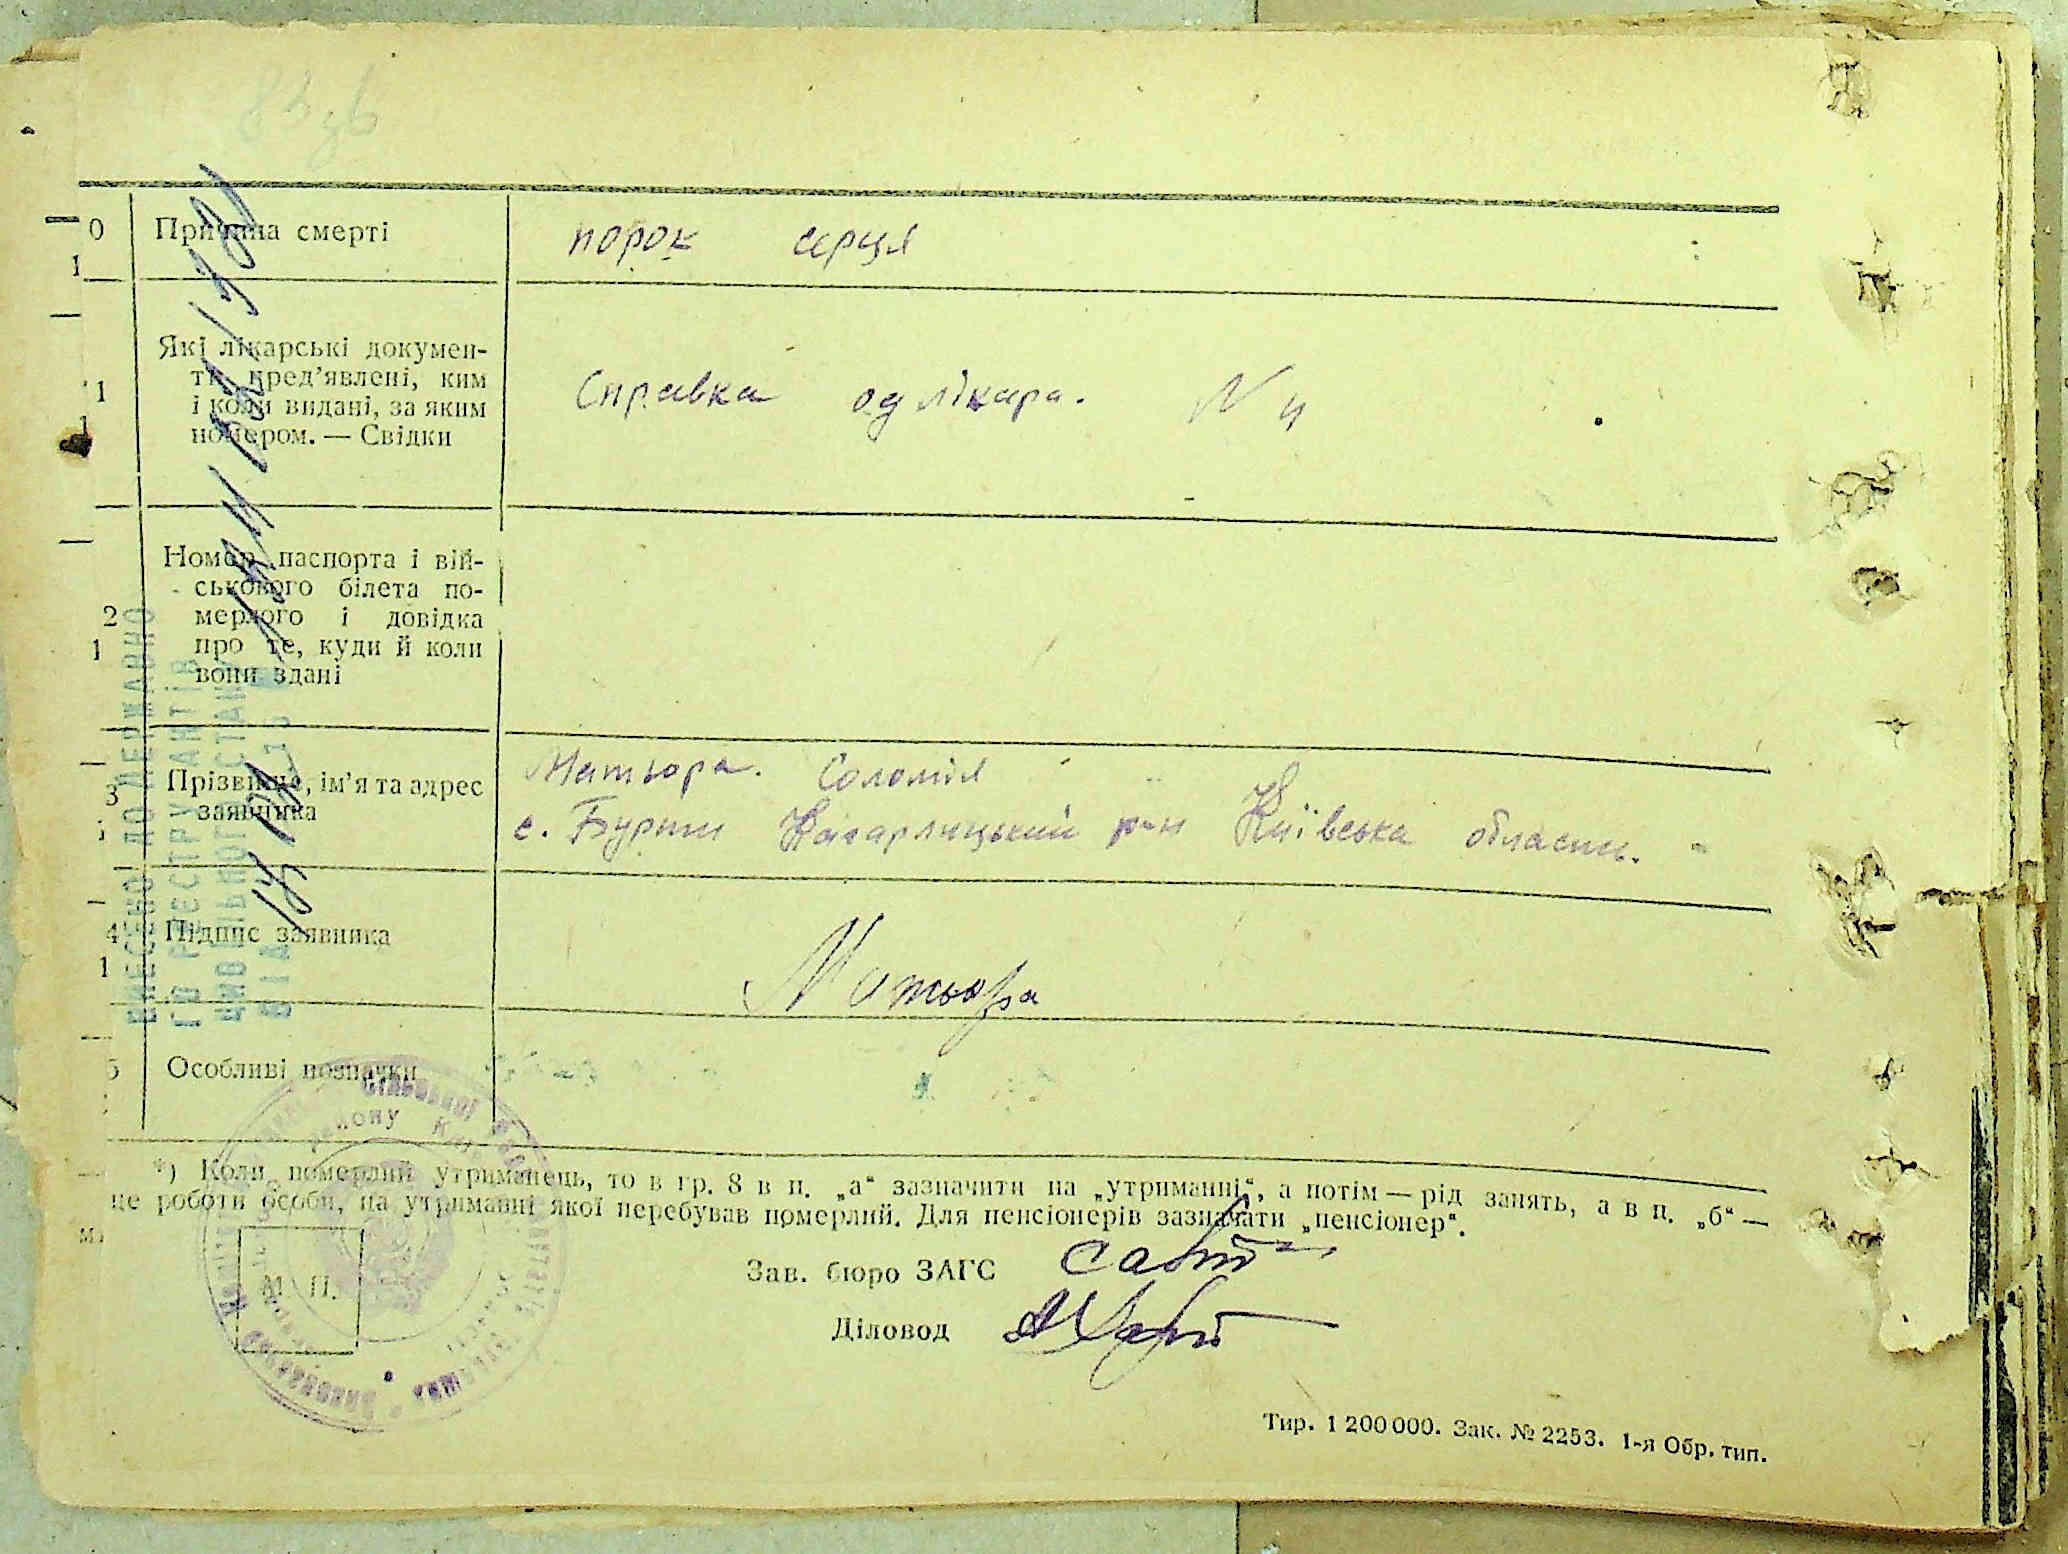 83 зв
10 Причина смерті порок серця
11 Які лікарські докумен-
ти пред’явлені, ким
і коли видані, за яким
номером. — Свідки
Справка од лікара. N 4
12 Номер паспорта і вій-
ськового білета по-
мерлого і довідка
про те, куди й коли
вони здані
13 Прізвище, ім’я та адрес
заявника
Матьора. Соломія
с. Бурти Кагарлицький р-н Київська область.
14 Підпис заявника Матьора
15 Особливі позначки
ВНЕСЕНО ДО ДЕРЖАВНО
ГО РЕЄСТРУ АКТІВ
ЦИВІЛЬНОГО СТАНУ
ВІД
*) Коли померлий утриманець, то в гр. 8 в п. „а“ зазначити на „утриманні“, а потім — рід занять, а в п. „б“ —
це роботи особи, на утриманні якої перебував померлий. Для пенсіонерів зазначати „пенсіонер“.
М. П.
Зав. бюро ЗАГС
Діловод
Тир. 1 200 000. Зак. № 2253. 1-я Обр. тип.